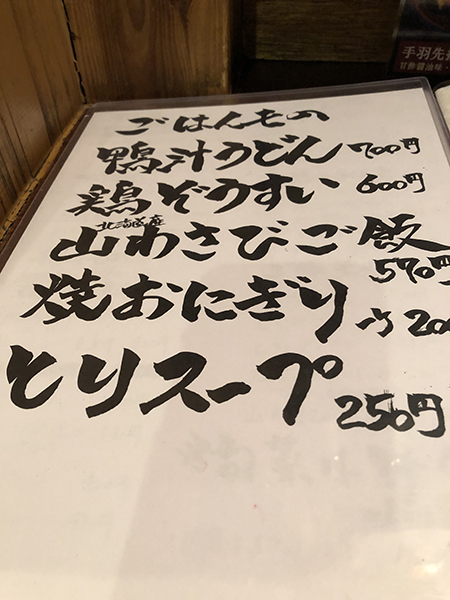 手羽先
甘酢醤油味・
ごはんもの
鴨汁うどん 700円
鶏ぞうすい 600円
北海道産
山わさびご飯
570円
焼おにぎり 一ケ 200
とりスープ 250円